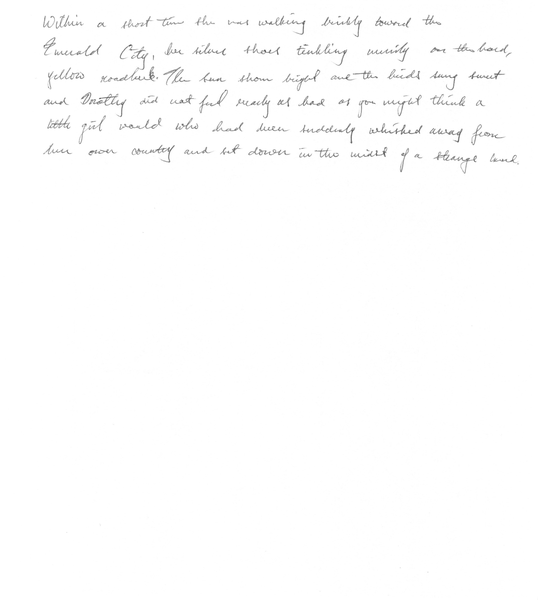 Within a short time she was walking briskly toward the
Emerald City, her silver shoes tinkling merrily on the hard,
yellow roadbed. The sun shone bright and the birds sang sweet
and Dorothy did not feel nearly as bad as you might think a
little girl would who had been suddenly whisked away from
her own country and set down in the midst of a strange land.